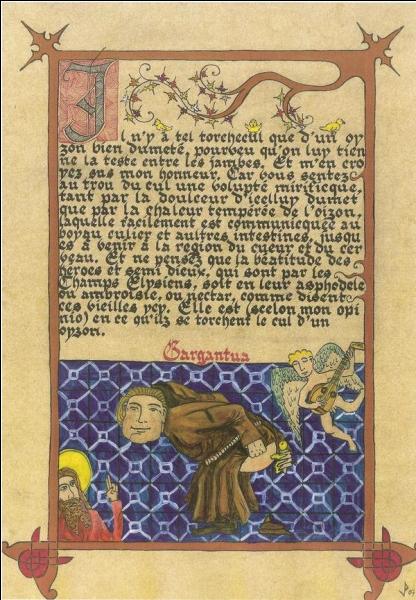 Il n'y à tel torchecul que d'un oy
zon bien dumeté, pourveu qu'on luy tien
ne la teste entre les jambes. Et m'en cro
yez sus mon honneur. Car vous sentez
au trou du cul une volupté mirificque,
tant par la douleeur d'icelluy dumet
que par la chaleur tempérée de l'oizon,
laquelle facilement est communicquée au
boyau culier et aultres intestines, jusqu
es à venir à la region du cueur et du cer
veau. Et ne pensez que la béatitude des
heroes et semi dieux, qui sont par les
Champs Elysiens, soit en leur asphodele
ou ambroisie, ou nectar, comme disent
ces vieilles ycy. Elle est (scelon mon opi
nio) en ce qu'ilz se torchent le cul d'un
oyzon.
Gargantua